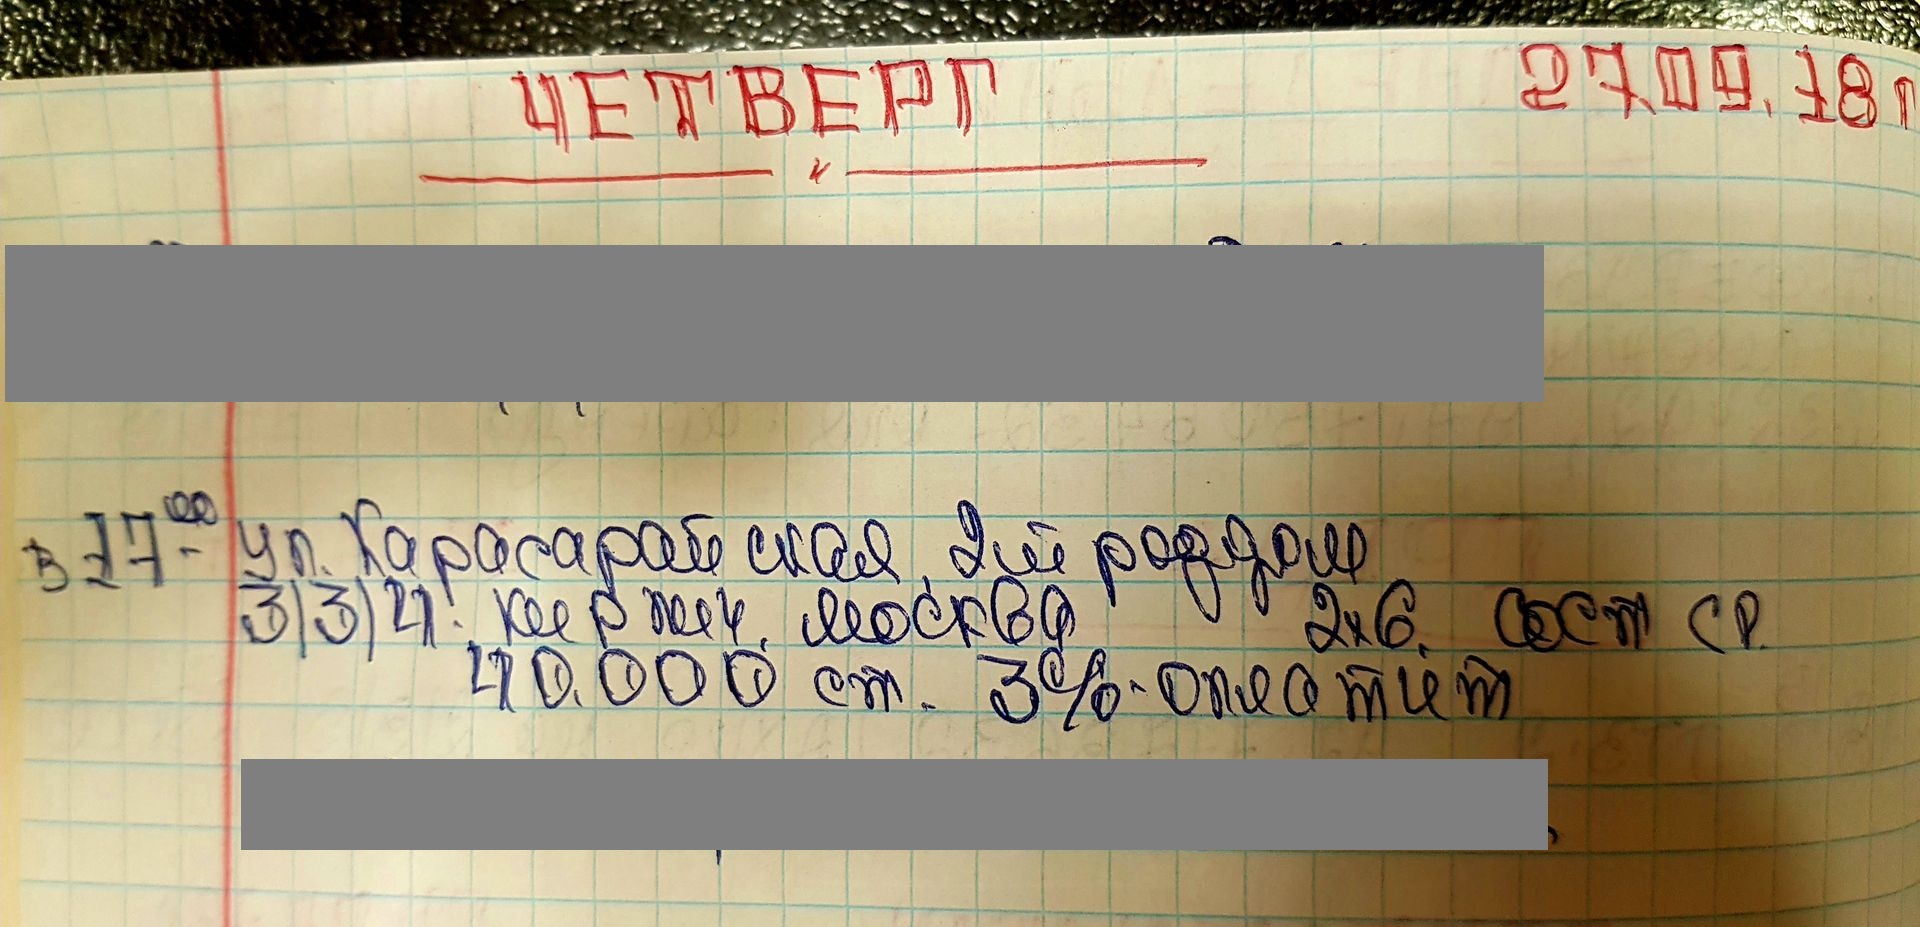 ЧЕТВЕРГ 27.09.18 г
в 17⁰⁰- ул. Карасарайская, 2ой роддом
3/3/4. кирпич, москва 2х6, сост ср.
40.000 ст. 3%-оплатит